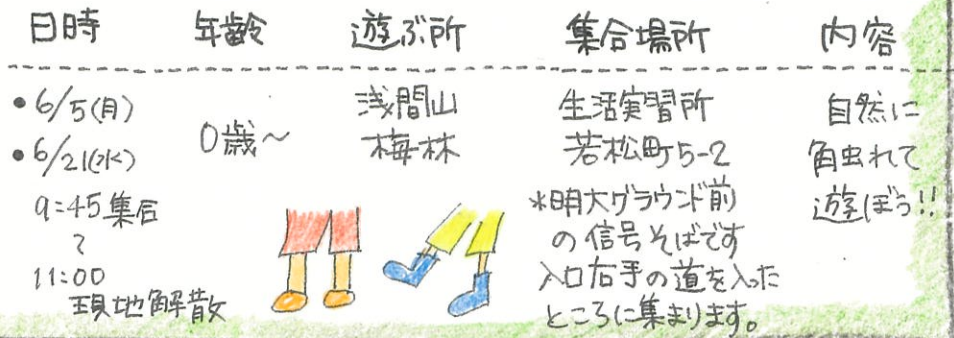 日時 年齢 遊ぶ所 集合場所 内容
• 6/5(月)
• 6/21(水)
9:45集合
〜
11:00
現地解散
0歳〜
浅間山
梅林
生活実習所
若松町5-2
*明大グラウンド前
の信号そばです
入口右手の道を入った
ところに集まります。
自然に
触れて
遊ぼう!!